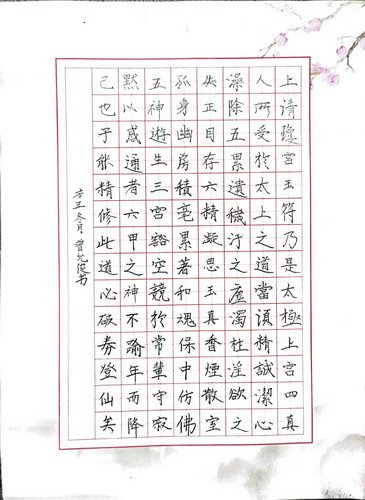 上請瓊宮玉符乃是太極上宮四真
人所受於太上之道當須精誠潔心
澡除五累遺穢汙之塵濁杜淫欲之
失正目存六精凝思玉真香煙散室
孤身幽房積毫累著和魂保中仿佛
五神遊生三宮豁空競於常輩守寂
默以感通者六甲之神不踰年而降
己也子能精修此道必破券登仙矣
冬月 曾 书